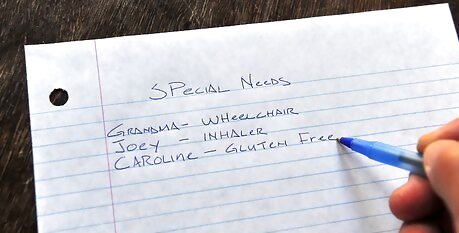 Special Needs
Grandma - Wheelchair
Joey - Inhaler
Caroline - Gluten Free